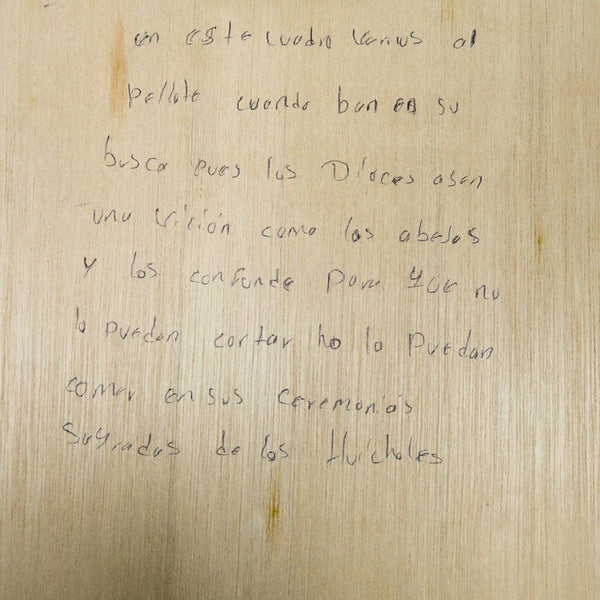 en este cuadro vemos al
pellote cuando ban en su
busca pues los Dioces asen
una vición como las abejas
y los confunde para que no
lo puedan cortar ho lo puedan
comer en sus ceremonias
sagradas de los Huicholes